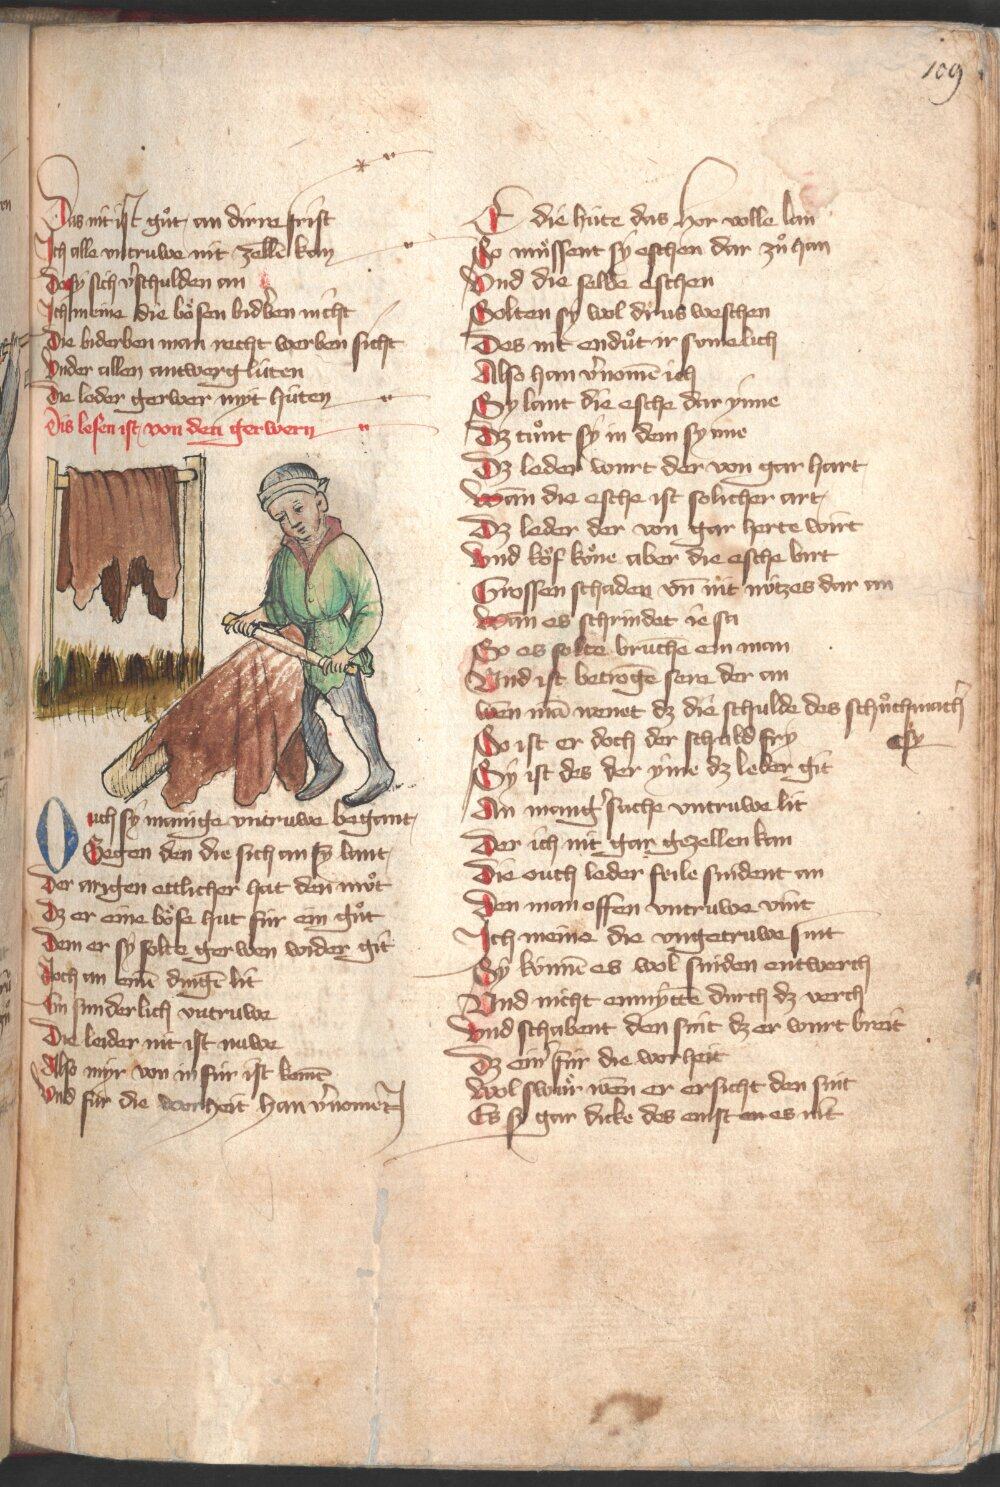 109
Das nit ist guͦt an dirre frist
Ich alle untruwe nit zellē kan
Do sy sich v̓schulden an
Ich meine die boͤsen bidrben nicht
Die biderben man recht werben sicht
Under allen antwerglüten
Die leder gerwer myt hüten
Dis lesen ist von den gerwern
Ouch sy manige untruwe begant
Gegen den die sich an sy lant
Der arigen ettlicher hat den muͦt
Dz er eine boͤse hut für ein guͦt
Dem er sy solte gerwen wider git
Noch an einē dingē lit
Ein sunderlich untruwe
Die leider nit ist nuwe
Also myr von in für ist komē
Und für die worheit han v̓nomen
E die hüte das hor volle lan
So muͤssent sy eschen dar zuͦ han
Und die selbe eschen
Solten sy wol dr us weschen
Des nit enduͦt ir sumelich
Also han v̓nomē ich
Sy lant die esche dar ynne
Dz tuͦnt sy in dem synne
Dz leder wurt der von gar hart
Wān die esche ist solicher art
Dz leder der von gar herte wirt
Und aber die esche birt
Grossen schaden vn̄ nit nützes dar an
Wan es schrindet ie sa
So es solte bruchē ein man
Und ist betrogē sere der an
Wen mā wenet dz die schulde des schuͦchmach̓
So ist er doch der schuld fry
sy
Sy ist des der yme dz leder git
An manig̓ sache untruwe lit
Der ich nit gar gezellen kan
Die ouch leder feile findent an
Den man offen untruwe vint
Ich meine die ungetruwe sint
Sy kommē es wol sniden entwerch
Und nicht enmyttē durch dz verch
Und schabent den snit dz er wurt breit
Dz ein̓ für die worheit
Wol swuͤr wēn er ersicht den snit
Es sy gar dicke des enist en es nit